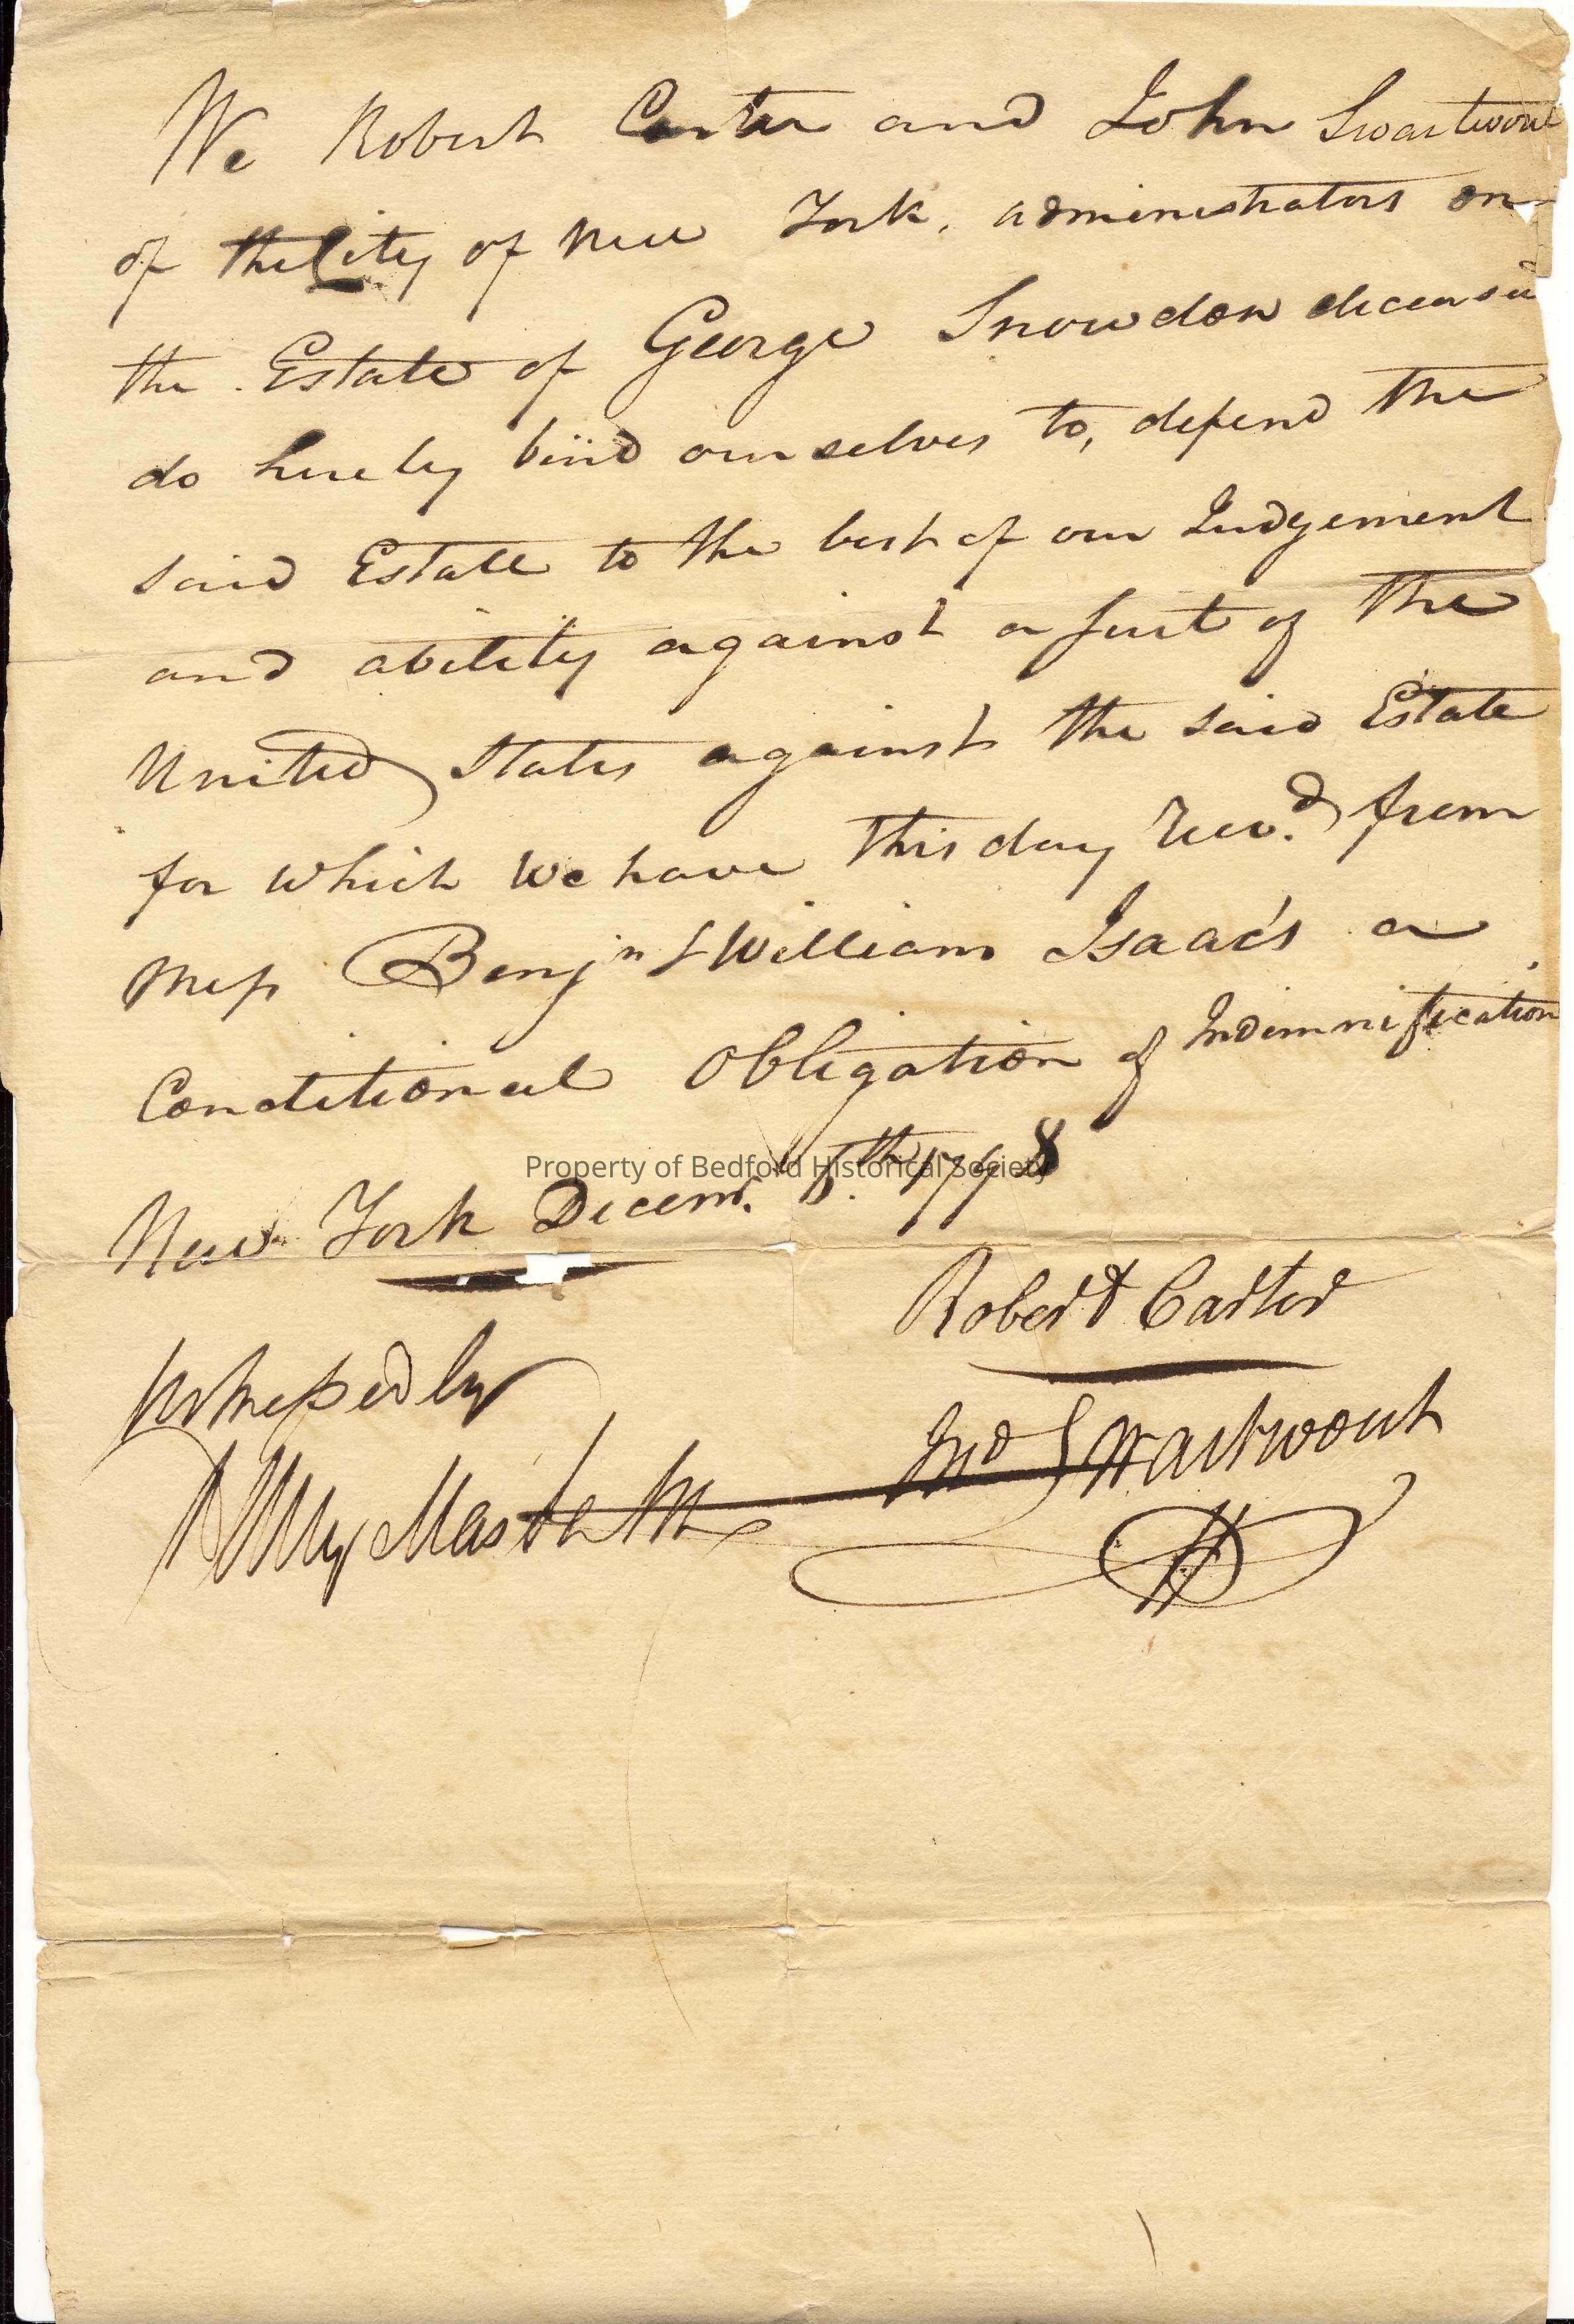 We Robert Carter and John Swartwout
of the City of New York, administrators on
the Estate of George Snowdon deceased
do hereby bind ourselves to, defend the
said Estate to the best of our Judgement
and ability against a suit of the
United States against the said Estate
for which we have this day Recv.d from
Mess Benjn & William Isaac's a
Conditional Obligation of Indemnification
New York Decemr. th 1798
Property of Bedford Historical Society
Robert Carter
Witnessed by
Jno Swartwout